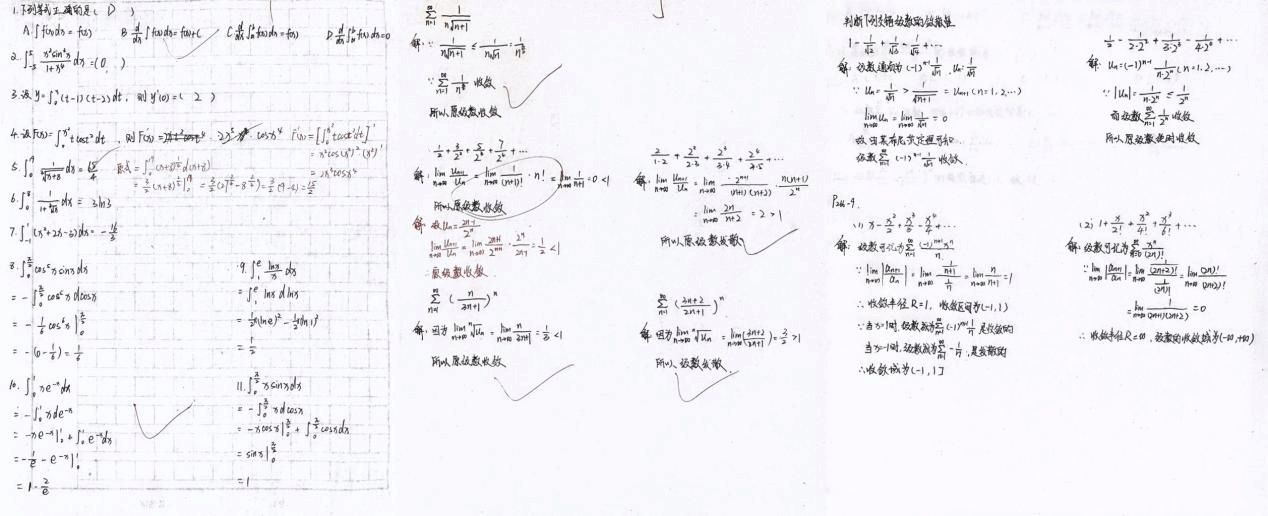 1.下列等式正确的是( D )
A.∫f'(x)dx = f(x) B d/dx ∫f(x)dx = f(x)+C C d/dx ∫ₐᵇ f(x)dx = f(x) D d/dx ∫ₐᵇ f(x)dx = 0
2.
dx = ( 0 )
3.设 y = ∫₀ˣ (t-1)(t-2)dt, 则 y'(0) = ( 2 )
4.设 F(x) = ∫₀^(x²) t cost² dt, 则 F'(x) =
5.
6.
= 3ln3
7.
8. ∫₀^(π/2) cos⁵x sinx dx
= -∫₀^(π/2) cos⁵x dcosx
= -1/6 cos⁶x |₀^(π/2)
= -(0-1/6) = 1/6
9. ∫₁ᵉ lnx/x dx
= ∫₁ᵉ lnx dlnx
= 1/2
10. ∫₀¹ xe⁻ˣ dx
= -∫₀¹ x de⁻ˣ
= -xe⁻ˣ|₀¹ + ∫₀¹ e⁻ˣ dx
= -1/e - e⁻ˣ|₀¹
= 1 - 2/e
11. ∫₀^(π/2) x sinx dx
= -∫₀^(π/2) x dcosx
= -xcosx|₀^(π/2) + ∫₀^(π/2) cosx dx
= sinx|₀^(π/2)
= 1
∑ₙ₌₁^∞ 1/(n√(n+1))
解:∵ 1/(n√(n+1)) ≤ 1/(n√n) = 1/n^(3/2)
∵ ∑ₙ₌₁^∞ 1/n^(3/2) 收敛
所以原级数收敛
1/2 + 3/2² + 5/2³ + 7/2⁴ + …
解: lim(n→∞) uₙ₊₁/uₙ = lim(n→∞) 1/(n+1)! · n! = lim(n→∞) 1/(n+1) = 0 < 1
所以原级数收敛
解:设 Uₙ = (2n-1)/2ⁿ
lim(n→∞) Uₙ₊₁/Uₙ = lim(n→∞) (2n+1)/2ⁿ⁺¹ · 2ⁿ/(2n-1) = 1/2 < 1
∴原级数收敛
∑ₙ₌₁^∞ (n/(3n+1))ⁿ
解:因为 lim(n→∞) ⁿ√uₙ = lim(n→∞) n/(3n+1) = 1/3 < 1
所以原级数收敛
2/(1·2) + 2²/(2·3) + 2³/(3·4) + 2⁴/(4·5) + …
解: lim(n→∞) uₙ₊₁/uₙ = lim(n→∞) 2ⁿ⁺¹/((n+1)(n+2)) · n(n+1)/2ⁿ
= lim(n→∞) 2n/(n+2) = 2 > 1
所以原级数发散
∑ₙ₌₁^∞ ((3n+2)/(2n+1))ⁿ
解:因为 lim(n→∞) ⁿ√uₙ = lim(n→∞) (3n+2)/(2n+1) = 3/2 > 1
所以级数发散
判断下列交错级数的敛散性
1 - 1/√2 + 1/√3 - 1/√4 + …
解:级数通项为 (-1)ⁿ⁻¹ 1/√n, uₙ = 1/√n
∵ uₙ = 1/√n > 1/√(n+1) = uₙ₊₁ (n=1,2,…)
lim(n→∞) uₙ = lim(n→∞) 1/√n = 0
故由莱布尼茨定理可知
级数 ∑ₙ₌₁^∞ (-1)ⁿ⁻¹ 1/√n 收敛
1/2 - 1/(2·2²) + 1/(3·2³) - 1/(4·2⁴) + …
解: uₙ = (-1)ⁿ⁻¹ 1/(n·2ⁿ) (n=1,2,…)
∵ |uₙ| = 1/(n·2ⁿ) ≤ 1/2ⁿ
而级数 ∑ₙ₌₁^∞ 1/2ⁿ 收敛
所以原级数绝对收敛
(1) x - x²/2 + x³/3 - x⁴/4 + …
解:级数可化为 ∑ₙ₌₁^∞ (-1)ⁿ⁺¹xⁿ/n
∵ lim(n→∞) |aₙ₊₁/aₙ| = lim(n→∞) (1/(n+1))/(1/n) = lim(n→∞) n/(n+1) = 1
∴ 收敛半径 R=1, 收敛区间为(-1,1)
当x=1时,级数成为 ∑ₙ₌₁^∞ (-1)ⁿ⁺¹ 1/n 是收敛的
当x=-1时,级数成为 ∑ₙ₌₁^∞ -1/n 是发散的
∴收敛域为(-1,1]
(2) 1 + x/2! + x²/4! + x³/6! + …
解:级数可化为 ∑ₙ₌₀^∞ xⁿ/(2n)!
∵ lim(n→∞) |aₙ₊₁/aₙ| = lim(n→∞) (1/(2n+2)!)/(1/(2n)!) = lim(n→∞) (2n)!/(2n+2)!
= 0
∴ 收敛半径R=∞, 级数的收敛域为(-∞,+∞)